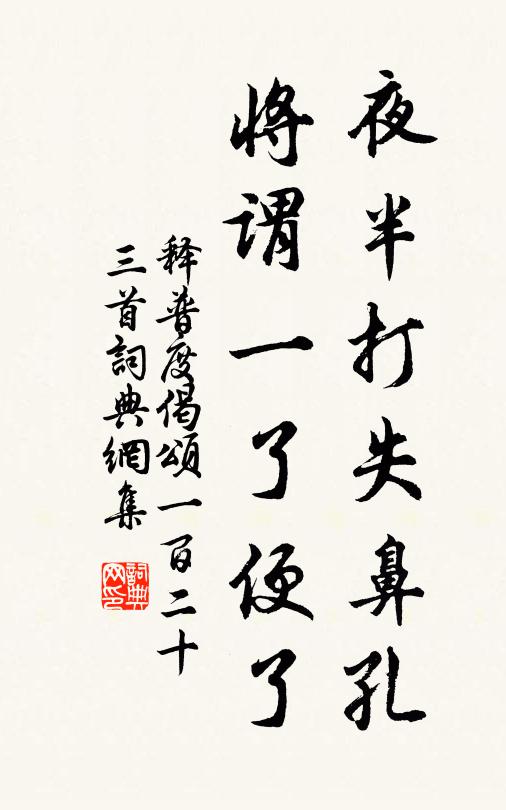 夜半打失鼻孔
将谓一了便了
释普度偈頌一百二十
三首詞典網集
詞典网印